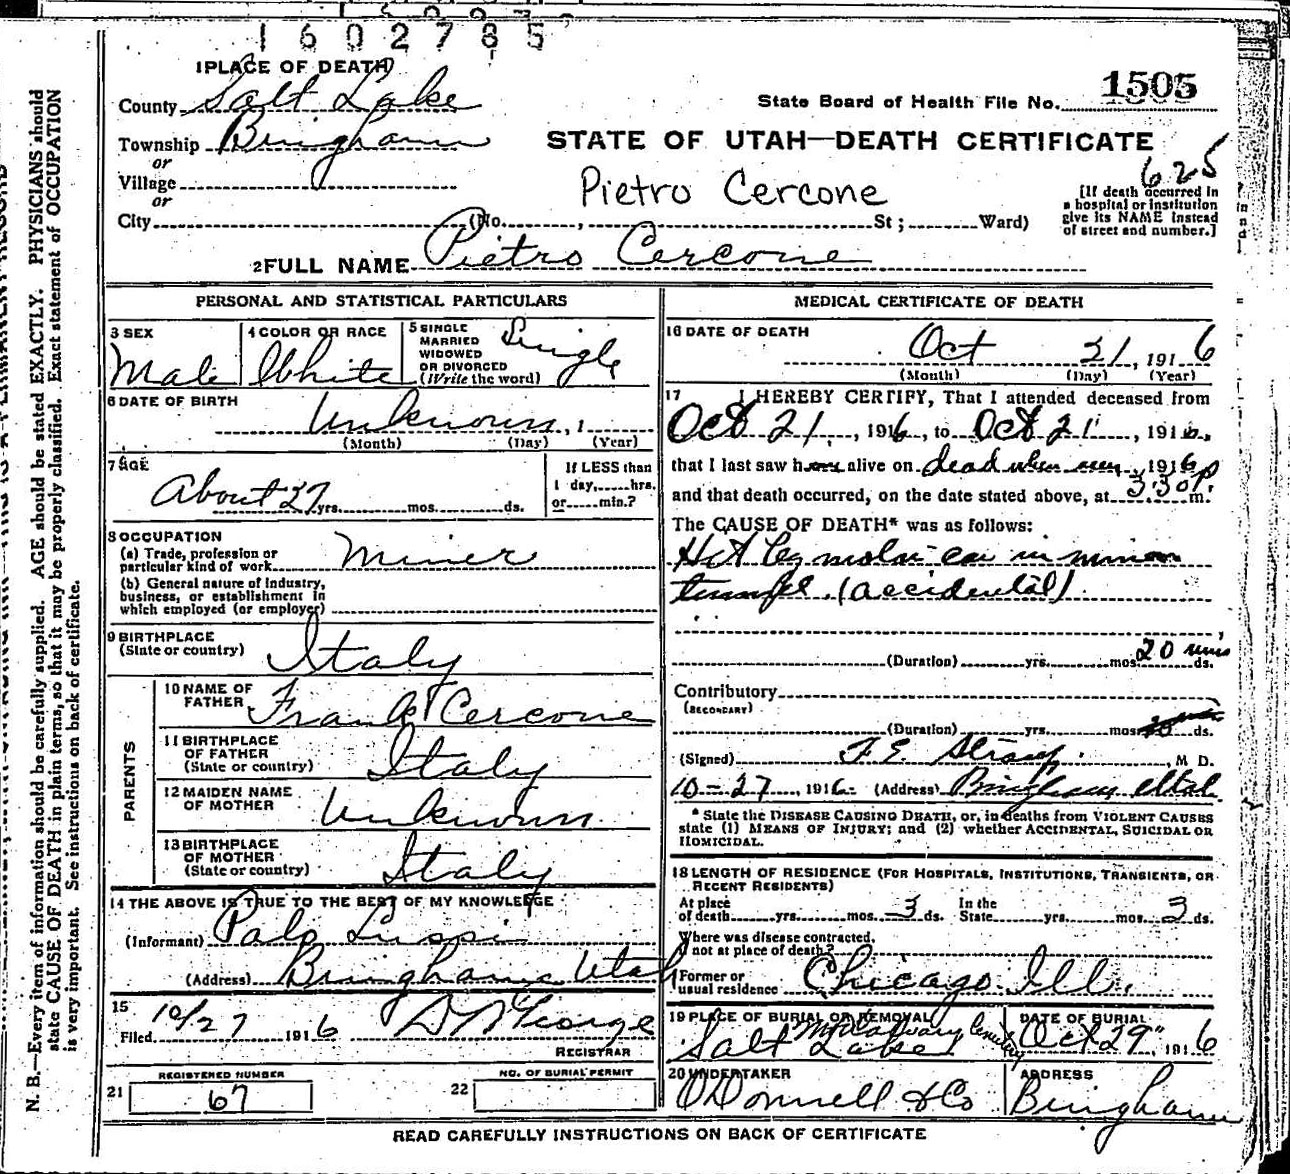 1602785
1 PLACE OF DEATH
County Salt Lake
State Board of Health File No. 1505
Township Bingham
STATE OF UTAH—DEATH CERTIFICATE
or
Village
625
or
Pietro Cercone
[If death occurred in
a hospital or institution
give its NAME instead
of street and number.]
City (No. , St ; Ward)
2 FULL NAME Pietro Cercone
PERSONAL AND STATISTICAL PARTICULARS
3 SEX
Male
4 COLOR OR RACE
White
5 SINGLE
MARRIED
WIDOWED
OR DIVORCED
(Write the word)
Single
6 DATE OF BIRTH
Unknown, 1
(Month) (Day) (Year)
7 AGE
About 27 yrs. mos. ds.
If LESS than
1 day, hrs.
or min.?
8 OCCUPATION
(a) Trade, profession or
particular kind of work Miner
(b) General nature of industry,
business, or establishment in
which employed (or employer)
9 BIRTHPLACE
(State or country) Italy
PARENTS
10 NAME OF
FATHER Frank Cercone
11 BIRTHPLACE
OF FATHER
(State or country) Italy
12 MAIDEN NAME
OF MOTHER Unknown
13 BIRTHPLACE
OF MOTHER
(State or country) Italy
14 THE ABOVE IS TRUE TO THE BEST OF MY KNOWLEDGE
(Informant) Palo Luppi
(Address) Bingham Utah
15
Filed 10/27 1916
REGISTRAR
REGISTERED NUMBER
21 67
NO. OF BURIAL PERMIT
22
MEDICAL CERTIFICATE OF DEATH
16 DATE OF DEATH
Oct 21, 1916
(Month) (Day) (Year)
17 I HEREBY CERTIFY, That I attended deceased from
Oct 21, 1916, to Oct 21, 1916,
that I last saw h alive on dead when seen, 1916
and that death occurred, on the date stated above, at 3:30 P. m.
The CAUSE OF DEATH* was as follows:
Hit by motor car in mine
tunnel. (accidental)
(Duration) yrs. mos. 20 mins ds.
Contributory
(SECONDARY)
(Duration) yrs. mos. ds.
(Signed) F. E. Straup, M D.
10-27, 1916 (Address) Bingham Utah
* State the DISEASE CAUSING DEATH, or, in deaths from VIOLENT CAUSES
state (1) MEANS OF INJURY; and (2) whether ACCIDENTAL, SUICIDAL OR
HOMICIDAL.
18 LENGTH OF RESIDENCE (FOR HOSPITALS, INSTITUTIONS, TRANSIENTS, OR
RECENT RESIDENTS)
At place
of death yrs. mos. 3 ds.
In the
State yrs. mos. 3 ds.
Where was disease contracted,
if not at place of death?
Former or
usual residence Chicago Ill.
19 PLACE OF BURIAL OR REMOVAL
Mt Calvary Cemetery
Salt Lake
DATE OF BURIAL
Oct 29", 1916
20 UNDERTAKER
O'Donnell & Co
ADDRESS
Bingham
READ CAREFULLY INSTRUCTIONS ON BACK OF CERTIFICATE
N. B.—Every item of information should be carefully supplied. AGE should be stated EXACTLY. PHYSICIANS should
state CAUSE OF DEATH in plain terms, so that it may be properly classified. Exact statement of OCCUPATION
is very important. See instructions on back of certificate.